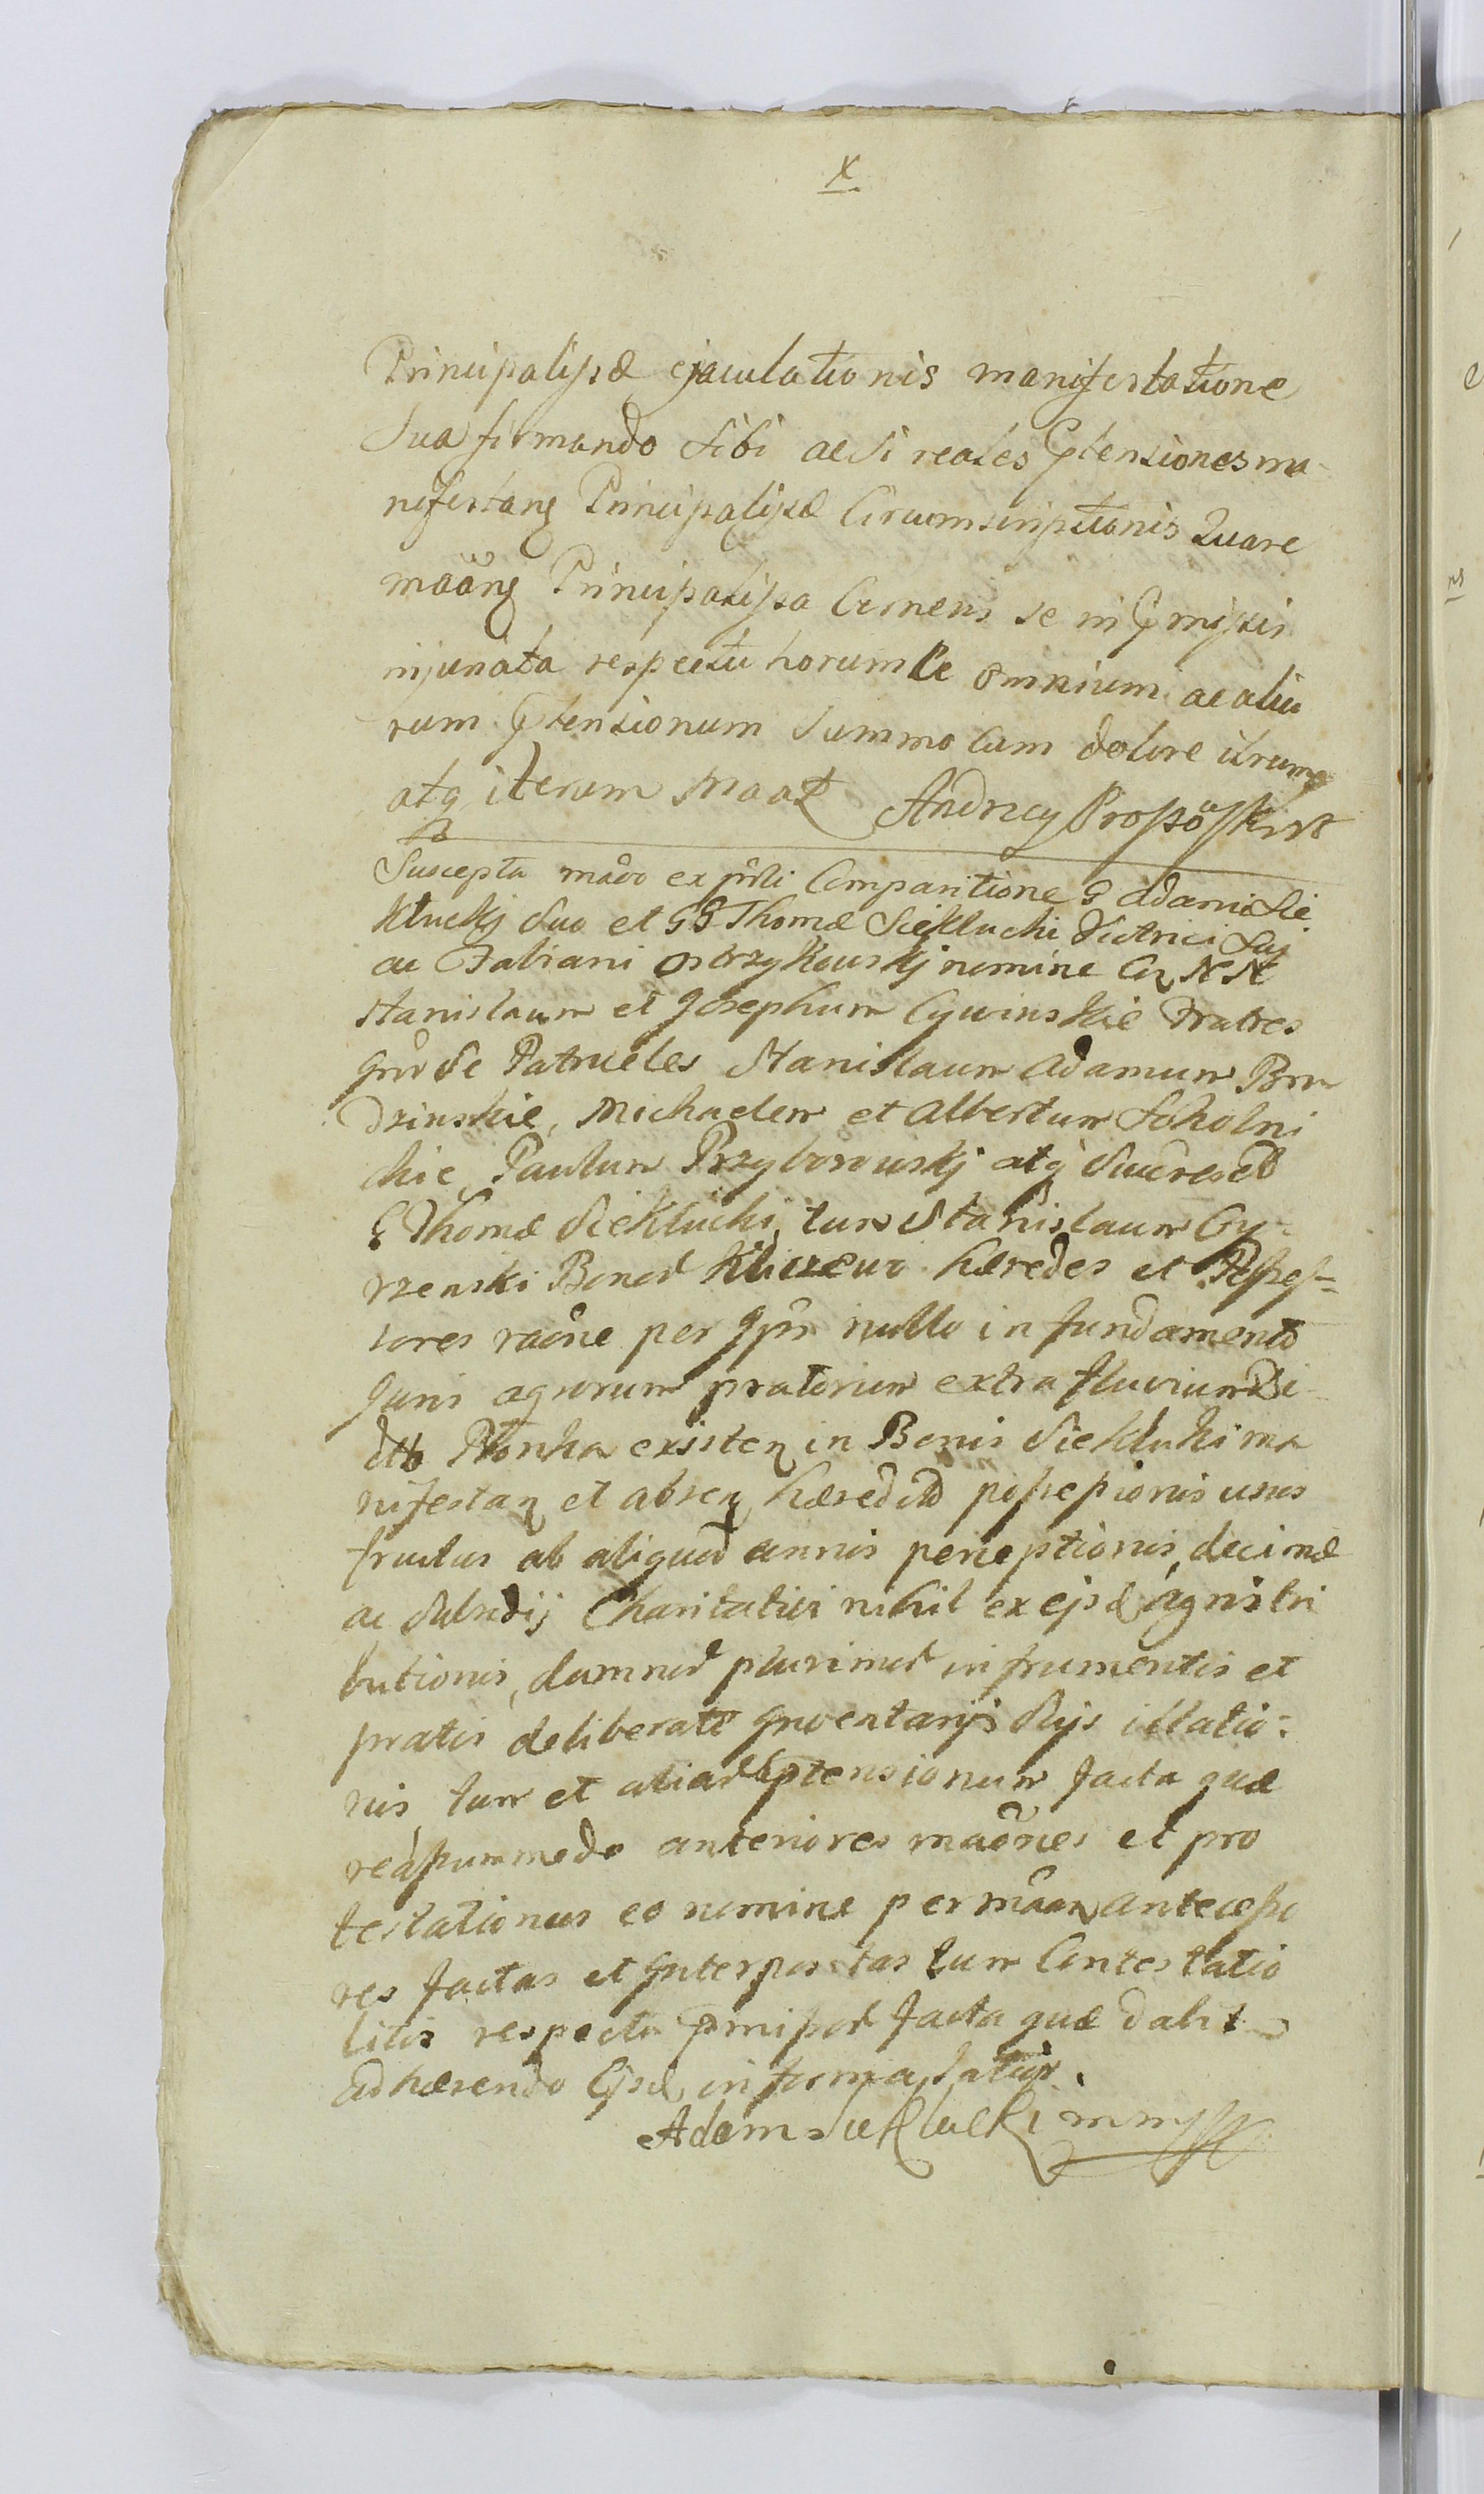 X
Principalissæ ejaculationis manifestatione
Sua firmando sibi ac si reales Ptensiones ma-
nifestanz Principalissæ Circumscriptionis Quare
mãanz Principalissa Cernens se in Pmissis
injuriata respectu horumce omnium ac alia
rum Ptensionum Summo cum dolore itrumq
atq iterum maat Andrzey
Suscepta mão ex pñti Comparitione G Adami Sie
kłuckj Suo et GG Thomæ Siekłucki Victrici Suj
ac Fabiani Ostrzykouskj nomine Cq NN
Stanislaum et Josephum Cywinskie Fratres
Inr se Patrueles Stanislaum Adamum Bru
dzinskie, Michaelem et Albertum Sokolni
ckie Paulum Przyborouskj atq Succresed
G Thomæ Siekłucki, tum Stanislaum Cy-
rzenski Bonor Kliczewo hæredes et Posses=
sores raõne per Ipsos nullo in fundamento
Juris agrorum pratorum extra fluvium Di
cto Płonka existenz in Bonis Siekłuki ma
nifestanz et absenz hæredum possessionis usus
fructus ab aliquod annis perceptionis, decimæ
ac Subsidij Charitativi nihil ex ejsd agris tri
butionis, damnor plurimor in frumentis et
pratis deliberate Inventarijs Suis illatio=
nis, tum et aliar Ptensionum facta quæ
reassummedo anteriores maõnes et pro
testationes eo nomine per mãanz antecesso
res factas et Interpositas tum Contestatio
litis respectu Pmissor facta quæ dabit
adhærendo Ejsd, in forma latiss.
Adam Siekłucki mmpp